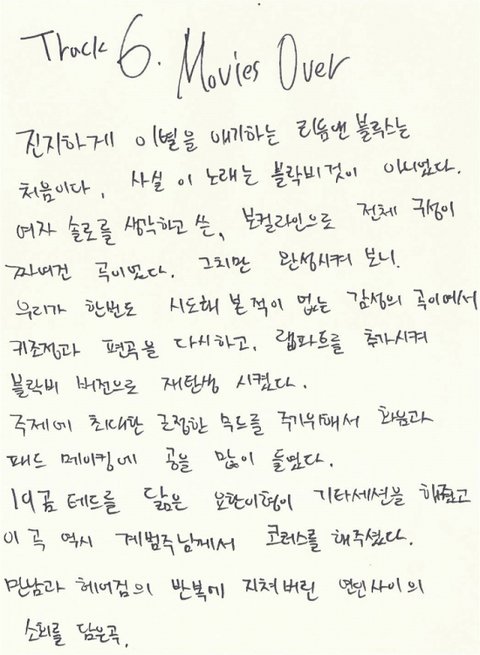 Track 6. Movies Over
진지하게 이별을 얘기하는 리듬앤블루스는
처음이다. 사실 이 노래는 블락비것이 아니었다.
여자 솔로를 생각하고 쓴, 보컬라인으로 전체 구성이
짜여진 곡이었다. 그치만 완성시켜 보니.
우리가 한번도 시도해 본적이 없는 감성의 곡이여서
키조정과 편곡을 다시하고, 랩파트를 추가시켜
블락비 버전으로 재탄생 시켰다.
주제에 최대한 근접한 무드를 주기위해서 화음과
패드 메이킹에 공을 많이 들였다.
19곰 테드를 닮은 요한이형이 기타세션을 해줬고
이 곡 역시 계범주님께서 코러스를 해주셨다.
만남과 헤어짐의 반복에 지쳐버린 연인사이의
소회를 담은곡.